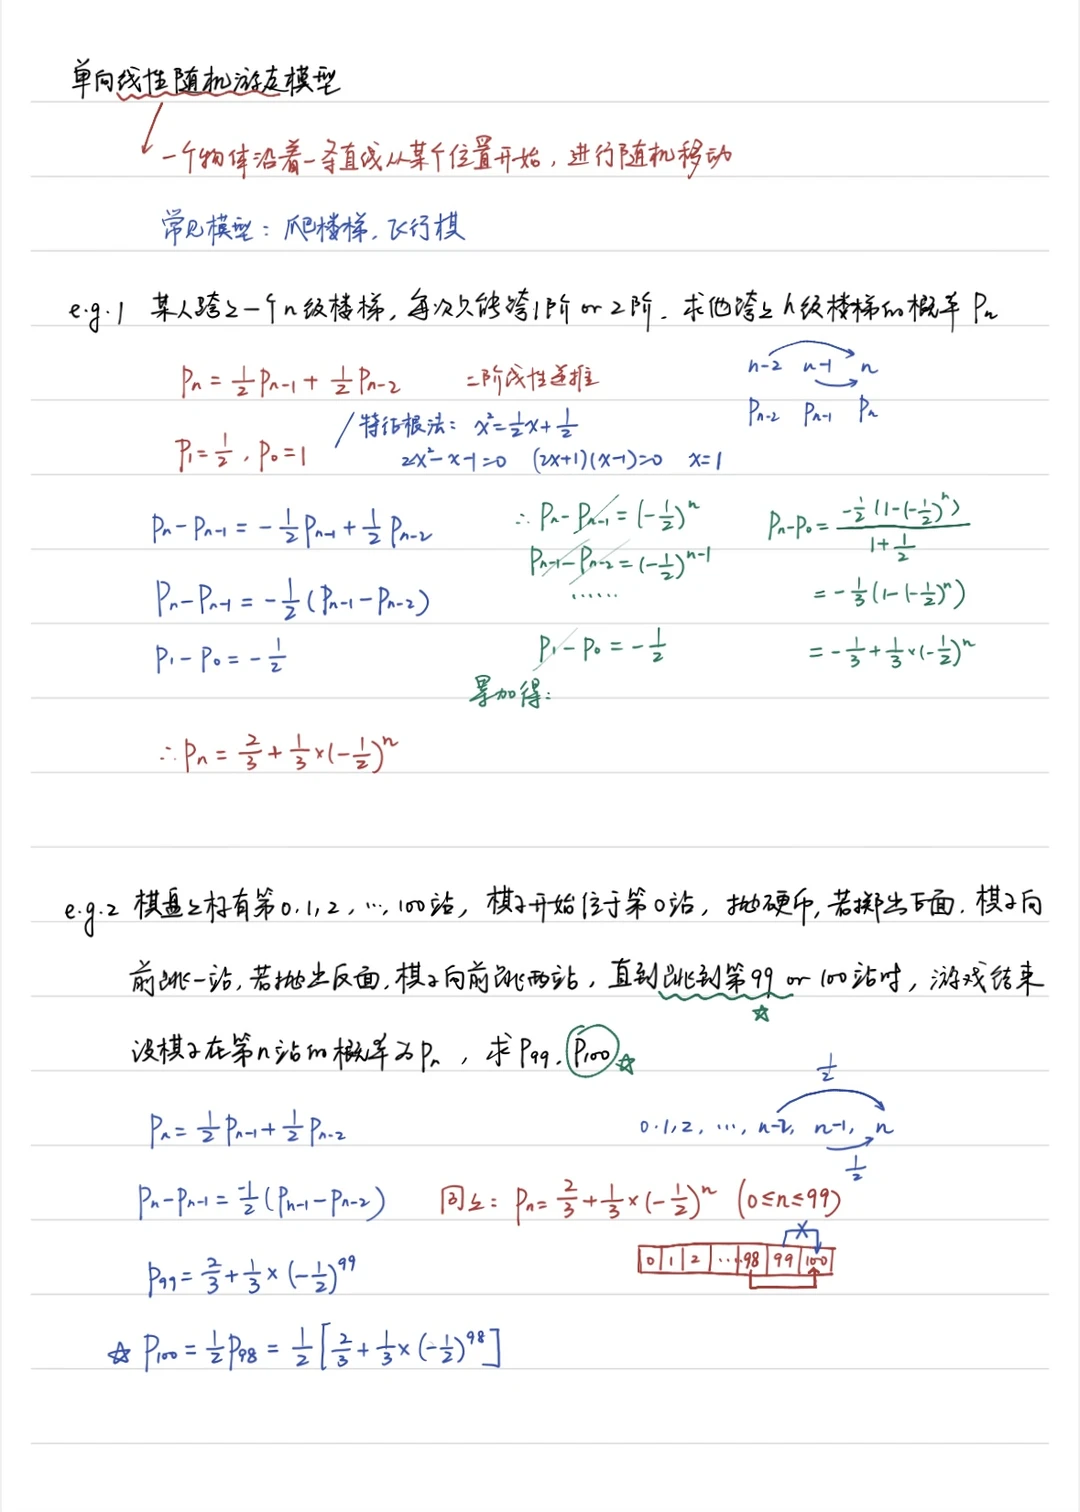 单向线性随机游走模型
一个物体沿着一条直线从某个位置开始，进行随机移动
常见模型：爬楼梯，飞行棋
e.g.1 某人跨上一个n级楼梯，每次只能跨1阶 or 2阶．求他跨上n级楼梯的概率 Pₙ
Pₙ = ½Pₙ₋₁ + ½Pₙ₋₂ 二阶线性递推
n-2 n-1 n
Pₙ₋₂ Pₙ₋₁ Pₙ
P₁ = ½，P₀ = 1
/特征根法：x² = ½x + ½
2x² - x - 1 = 0 (2x+1)(x-1) = 0 x = 1
Pₙ - Pₙ₋₁ = -½Pₙ₋₁ + ½Pₙ₋₂
Pₙ - Pₙ₋₁ = -½(Pₙ₋₁ - Pₙ₋₂)
P₁ - P₀ = -½
∴ Pₙ - Pₙ₋₁ = (-½)ⁿ
Pₙ₋₁ - Pₙ₋₂ = (-½)ⁿ⁻¹
……
P₁ - P₀ = -½
累加得：
Pₙ - P₀ = -½(1-(-½)ⁿ) / (1+½)
= -⅓(1-(-½)ⁿ)
= -⅓ + ⅓×(-½)ⁿ
∴ Pₙ = ⅔ + ⅓×(-½)ⁿ
e.g.2 棋盘上标有第0,1,2，…，100站，棋子开始位于第0站，抛硬币，若掷出正面，棋子向
前跳一站，若抛出反面，棋子向前跳两站，直到跳到第99 or 100站时，游戏结束
☆
设棋子在第n站的概率为Pₙ，求P₉₉，P₁₀₀☆
½
Pₙ = ½Pₙ₋₁ + ½Pₙ₋₂
0,1,2，…，n-2, n-1, n
½
Pₙ - Pₙ₋₁ = -½(Pₙ₋₁ - Pₙ₋₂) 同上：Pₙ = ⅔ + ⅓×(-½)ⁿ (0≤n≤99)
×
0 1 2 … 98 99 100
P₉₉ = ⅔ + ⅓×(-½)⁹⁹
☆ P₁₀₀ = ½P₉₈ = ½[⅔ + ⅓×(-½)⁹⁸]